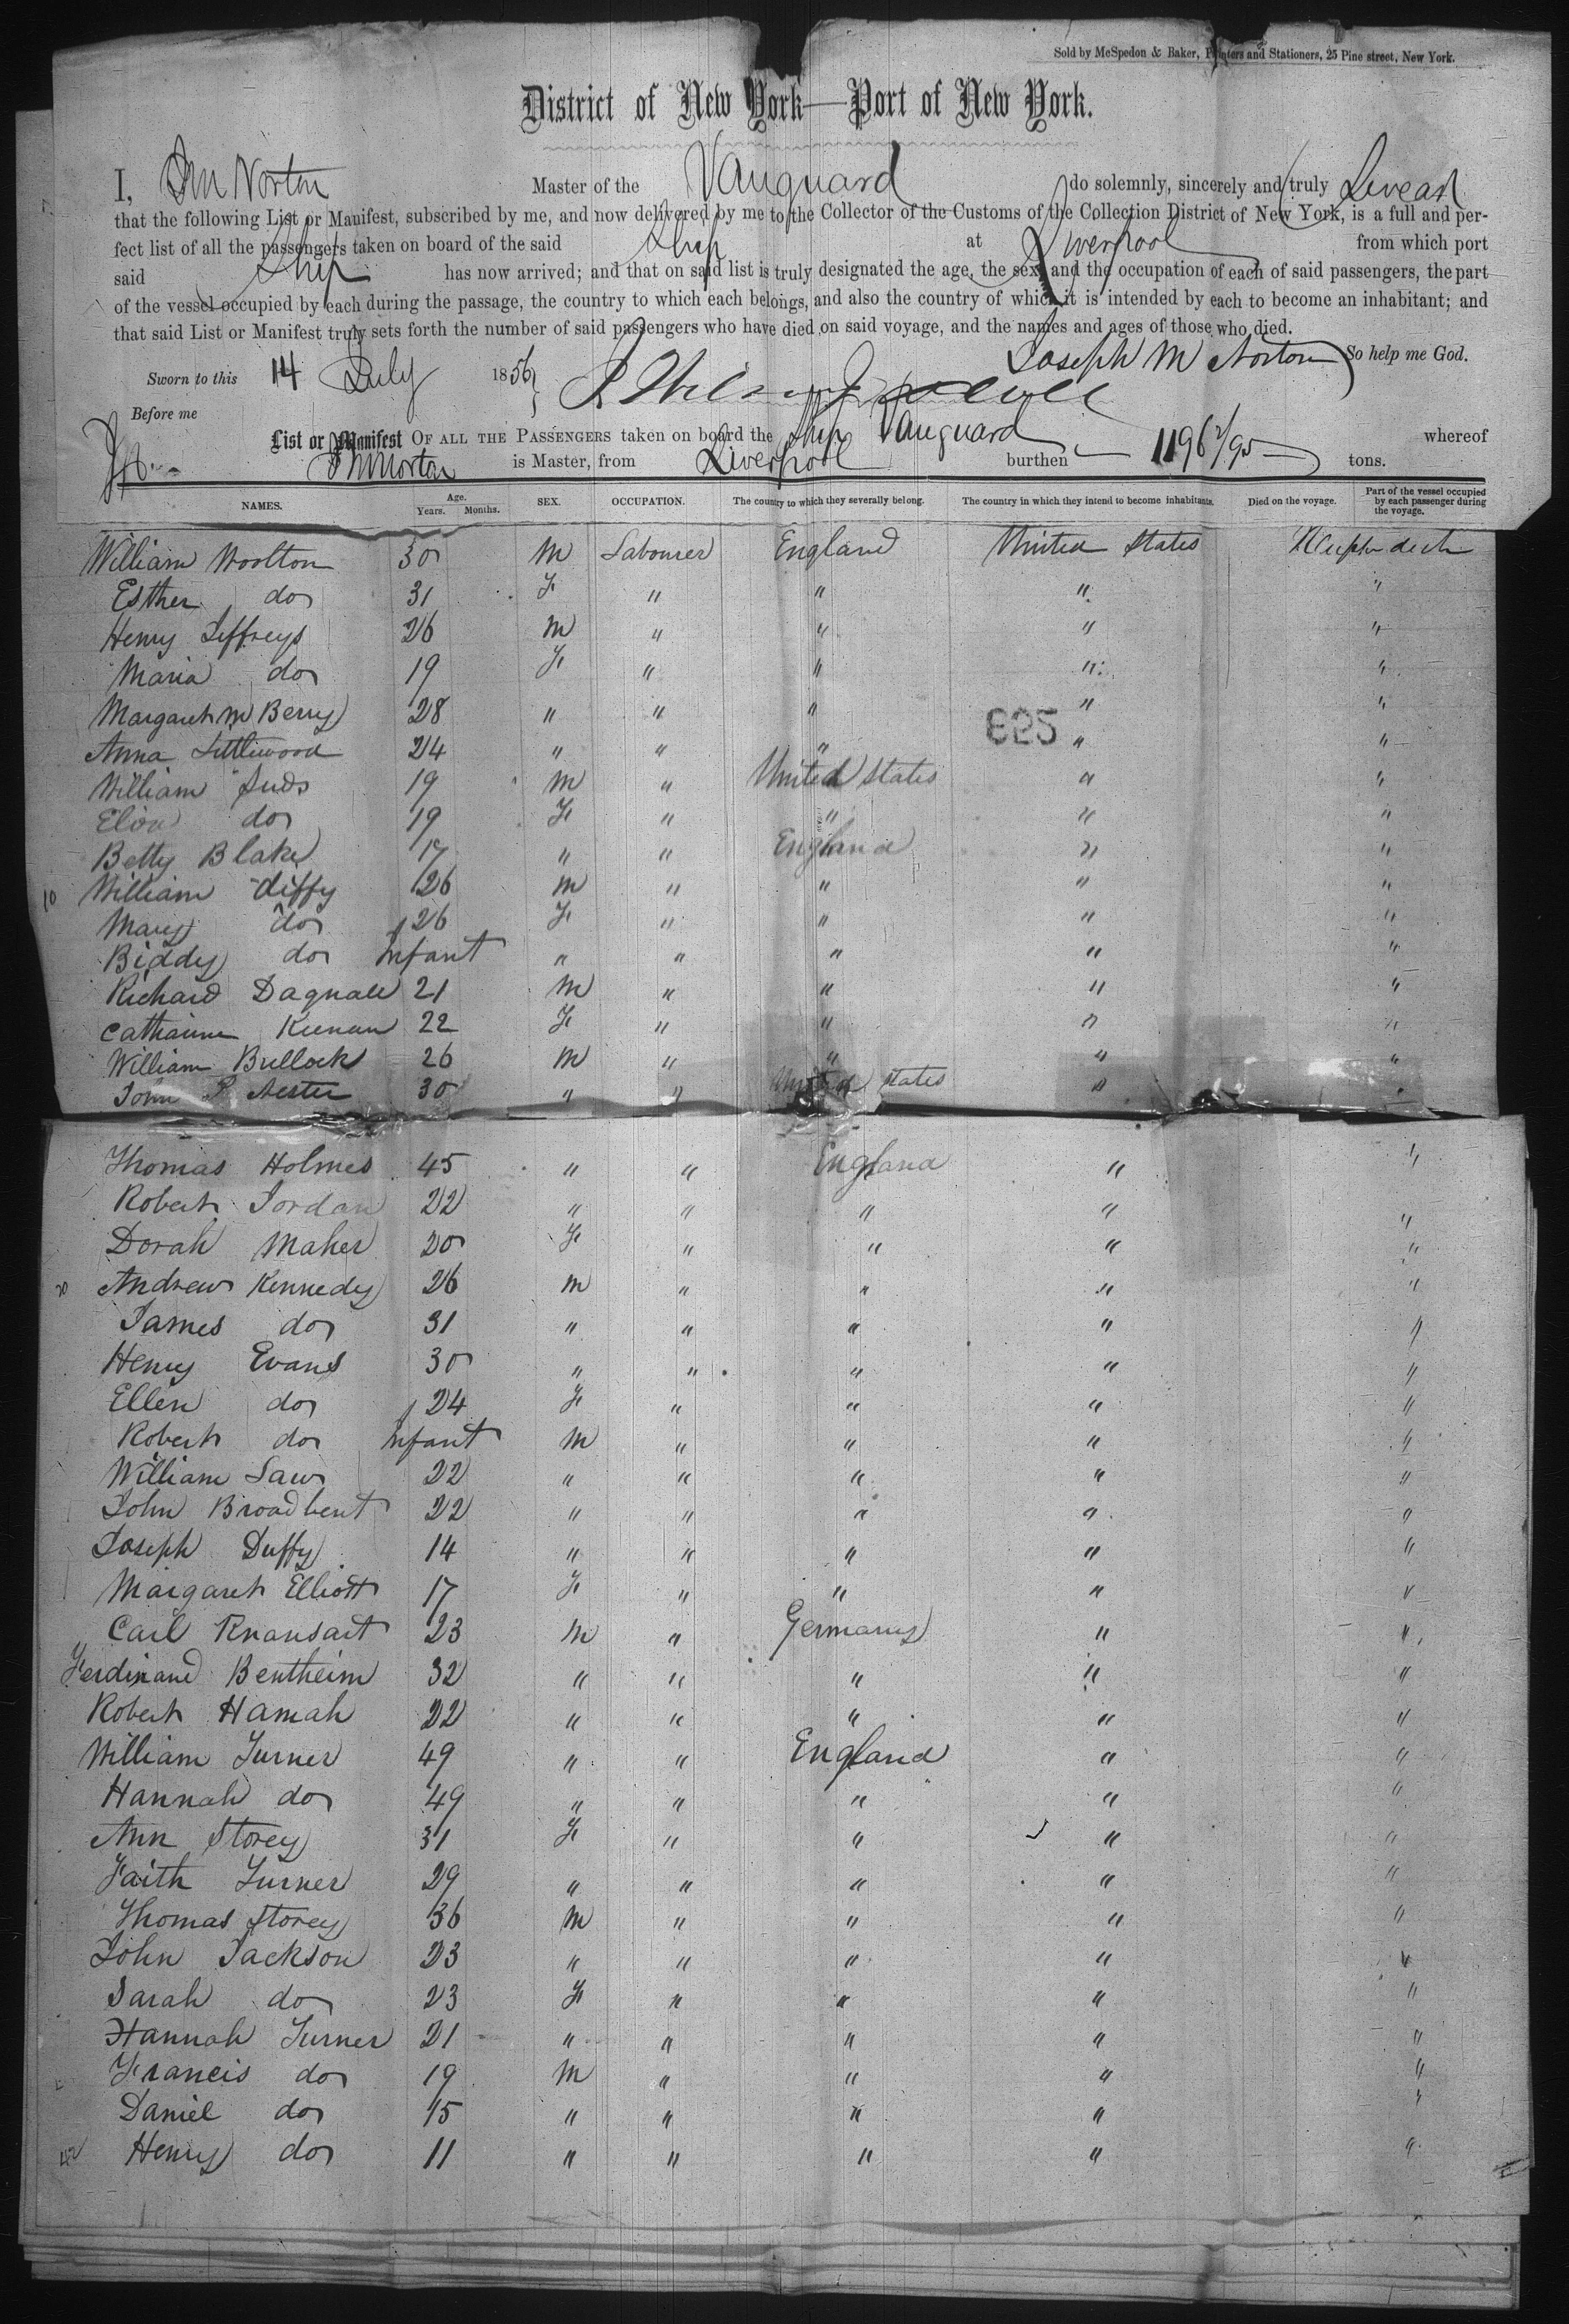 Sold by McSpedon & Baker, Printers and Stationers, 25 Pine street, New York.
District of New York—Port of New York.
I, Jm Norton Master of the Vanguard do solemnly, sincerely and truly Swear
that the following List or Manifest, subscribed by me, and now delivered by me to the Collector of the Customs of the Collection District of New York, is a full and per-
fect list of all the passengers taken on board of the said Ship at Liverpool from which port
said Ship has now arrived; and that on said list is truly designated the age, the sex, and the occupation of each of said passengers, the part
of the vessel occupied by each during the passage, the country to which each belongs, and also the country of which it is intended by each to become an inhabitant; and
that said List or Manifest truly sets forth the number of said passengers who have died on said voyage, and the names and ages of those who died.
Joseph M Norton So help me God.
Sworn to this 14 July 1856
Before me
List or Manifest OF ALL THE PASSENGERS taken on board the Ship Vanguard whereof
JM Norton is Master, from Liverpool burthen 1196 2/95 tons.
NAMES. Age. Years. Months. SEX. OCCUPATION. The country to which they severally belong. The country in which they intend to become inhabitants. Died on the voyage. Part of the vessel occupied by each passenger during the voyage.
William Woolton 30 M Labourer England United States deck
Esther do 31 F " " " "
Henry Jeffreys 26 M " " " "
Maria do 19 F " " " "
Margaret M Berry 28 " " " " "
625
Anna Littlewood 24 " " " " "
William Juds 19 M " United States " "
Eliza do 19 F " " " "
Betty Blake 17 " " England " "
10 William diffy 26 M " " " "
Mary do 26 F " " " "
Biddy do Infant " " " " "
Richard Dagnall 21 M " " " "
Catharine Keenan 22 F " " " "
William Bullock 26 M " " " "
John P Nester 30 " " United States " "
Thomas Holmes 45 " " England " "
Robert Jordan 22 " " " " "
Dorah Maher 20 F " " " "
20 Andrew Kennedy 26 M " " " "
James do 31 " " " " "
Henry Evans 30 " " " " "
Ellen do 24 F " " " "
Robert do Infant M " " " "
William Law 22 " " " " "
John Broadbent 22 " " " " "
Joseph Duffy 14 " " " " "
Margaret Elliott 17 F " " " "
Carl Knansart 23 M " Germany " "
Ferdinand Bentheim 32 " " " " "
Robert Hamah 22 " " " " "
William Turner 49 " " England " "
Hannah do 49 " " " " "
Ann Storey 31 F " " " "
Faith Turner 29 " " " " "
Thomas Storey 36 M " " " "
John Jackson 23 " " " " "
Sarah do 23 F " " " "
Hannah Turner 21 " " " " "
Francis do 19 M " " " "
Daniel do 15 " " " " "
42 Henry do 11 " " " " "